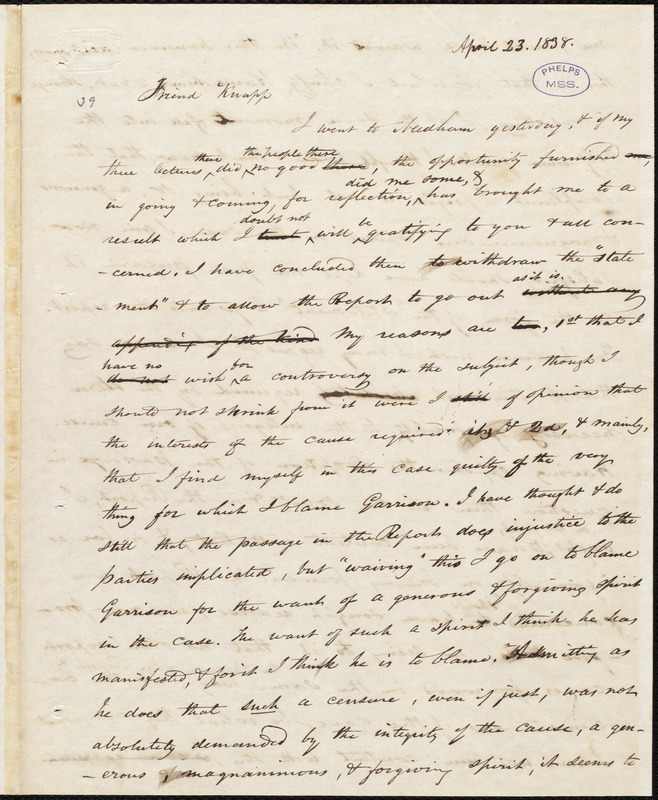 April 23. 1838.
PHELPS
MSS.
Friend Knapp
I went to Needham yesterday, & if my
there the people there
three lectures did no good those, the opportunity furnished me,
did me some, &
in going & coming, for reflection, has brought me to a
doubt not be
result which I trust will gratifying to you & all con-
-cerned. I have concluded then to withdraw the "State
as it is.
-ment" & to allow the Report to go out without any
appendix of the kind My reasons are two, 1st that I
have no for
do not wish a controversy on the subject, though I
should not shrink from it were I of opinion that
the interests of the cause required it, & 2d, & mainly,
that I find myself in this case guilty of the very
thing for which I blame Garrison. I have thought & do
still that the passage in the Report does injustice to the
parties implicated, but "waiving" this I go on to blame
Garrison for the want of a generous & forgiving spirit
in the case. The want of such a spirit I think he has
manifested, & for it I think he is to blame. Admitting as
he does that such a censure, even if just, was not
absolutely demanded by the integrity of the cause, a gen-
-erous magnanimous, & forgiving spirit, it seems to